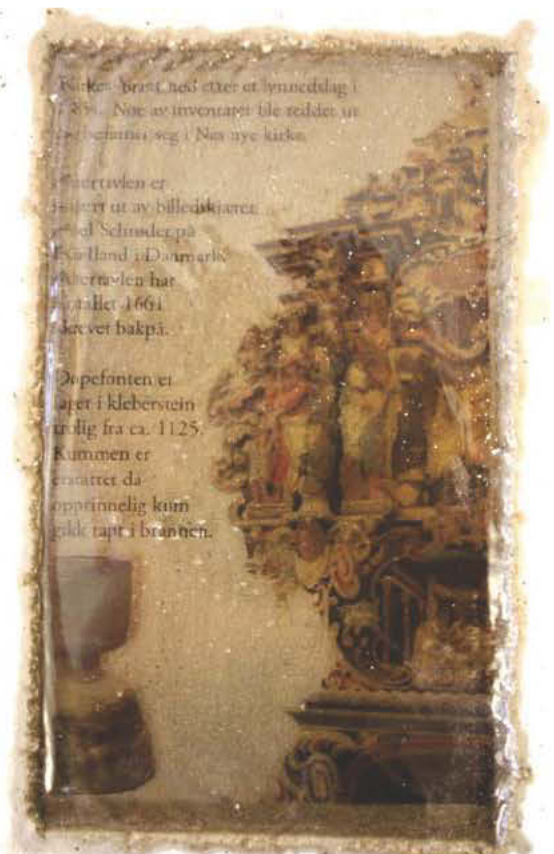 Kirken brant ned etter et lynnedslag i
Noe av inventaret ble reddet ut
og befinner seg i Nes nye kirke.
Altertavlen er
skåret ut av billedskjærer
Schrøder på
i Danmark.
Altertavlen har
årstallet 1661
skrevet bakpå.
Døpefonten er
laget i kleberstein
trolig fra ca. 1125.
Kummen er
erstattet da
opprinnelig kum
gikk tapt i brannen.